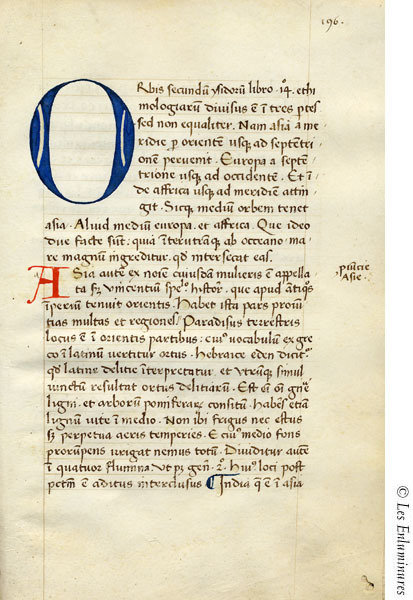 196.
ORbis secundũ ysidorũ libro · 14 · ethi
mologiarũ divisus ẽ ĩ tres ptes
sed non equaliter. Nam asia a me
ridie p orientẽ usq; ad septẽtri
onẽ pervenit. Europa a septẽ
trione usq; ad occidentẽ. Et ĩ
de affrica usq; ad meridiẽ attin
git. Sicq; mediũ orbem tenet
asia. Aliud mediũ europa. et affrica. Que ideo
due facte sũt: quia ĩter utrũq; ab oceano ma
re magnũ ingreditur. qd intersecat eas.
ASia autẽ ex noĩe cuiusdã mulieris ẽ appella
ta sз vincentiũ ĩ spelo histor. que apud ãtiqs
ĩperiũ tenuit orientis. Habet ista pars provĩ
tias multas et regiones. Paradisus terrestris
locus ẽ ĩ orientis partibus. cuius vocabulũ ex gre
co ĩ latinũ vertitur ortus. Hebraice eden dicit
qd latine delitie ĩterpretatur. et utrũq; simul
iunctũ resultat ortus delitiarũ. Est ẽ oĩ gñe
ligni. et arborũ pomiferar consitũ. Habẽs etiã
lignũ vite ĩ medio. Non ibi frigus nec estus
sз perpetua aeris temperies. E cuius medio fons
prorũpens irrigat nemus totũ. Dividitur autẽ
ĩ quatuor flumina ut pз gen. 2. Huius loci post
petm ẽ aditus interclusus. India q ẽ ĩ asia
Asie.
© Les Enluminures